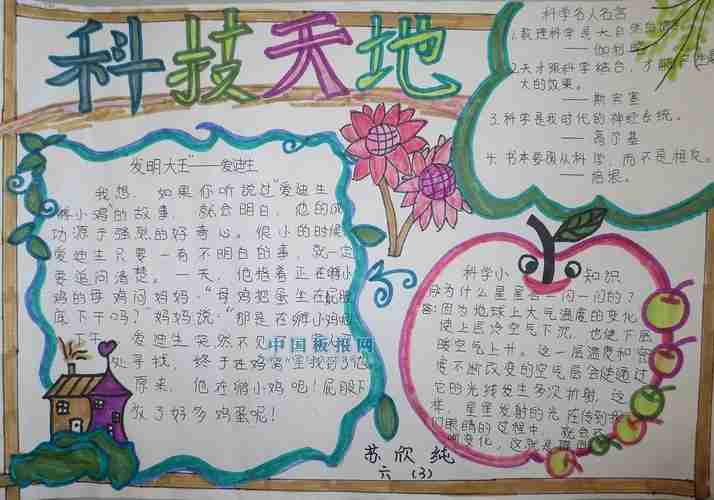 科技天地
发明大王"——爱迪生
我想，如果你听说过"爱迪生
孵小鸡的故事，就会明白，他的成
功源于强烈的好奇心。很小的时候
爱迪生只要一有不明白的事，就一定
要追问清楚。一天，他指着正在孵小
鸡的母鸡问妈妈："母鸡把蛋坐在屁股
底下干吗？"妈妈说："那是在孵小鸡呢
下午，爱迪生突然不见
处寻找，终于在鸡窝里找到了他
原来，他在孵小鸡吧！屁股下
放了好多鸡蛋呢！
中国板报网
科学名人名言
1.数理科学是大自然的语言
——伽利略
2.天才跟科学结合，才能
大的效果。
——斯宾塞
3.科学是我时代的神经系统。
——高尔基
4.书本要现从科学，而不是相反。
——培根。
科学小知识
问为什么星星会一闪一闪的？
答：因为地球上大气温度的变化
使上层冷空气下沉，也使下层
暖空气上升。这一层温度和密
度不断改变的空气层会使通过
它的光线发生多次折射，这
样，星星发射的光在传到我
们眼睛的过程中，就会
变化，这就是
苏欣纯
六（3）